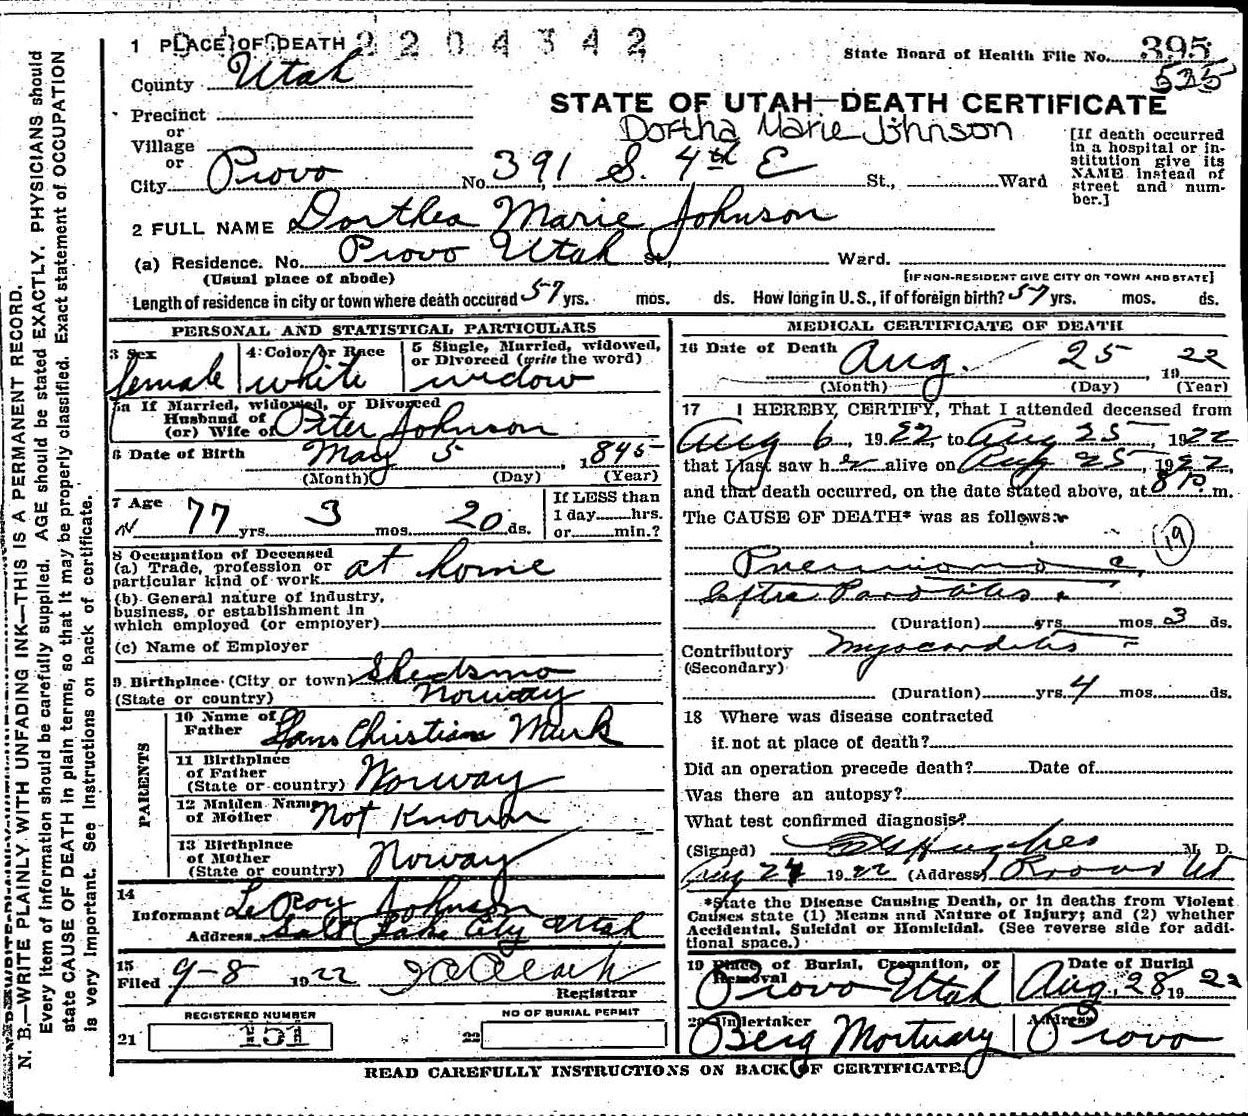 1 PLACE OF DEATH 2204342
State Board of Health File No. 395
535
County Utah
STATE OF UTAH—DEATH CERTIFICATE
Precinct
or
Village
or
Dortha Marie Johnson
City Provo No. 391 S. 4th E St., Ward
[If death occurred in a hospital or institution give its NAME instead of street and number.]
2 FULL NAME Dorthea Marie Johnson
(a) Residence. No. Provo Utah St., Ward.
(Usual place of abode) [IF NON-RESIDENT GIVE CITY OR TOWN AND STATE]
Length of residence in city or town where death occured 57 yrs. mos. ds. How long in U. S., if of foreign birth? 57 yrs. mos. ds.
PERSONAL AND STATISTICAL PARTICULARS
3 Sex female
4 Color or Race white
5 Single, Married, widowed, or Divorced (write the word) widow
5a If Married, widowed, or Divorced
Husband of
(or) Wife of Peter Johnson
6 Date of Birth May 5, 1845
(Month) (Day) (Year)
7 Age 77 yrs. 3 mos. 20 ds.
If LESS than
1 day hrs.
or min.?
8 Occupation of Deceased
(a) Trade, profession or
particular kind of work at home
(b) General nature of industry,
business, or establishment in
which employed (or employer)
(c) Name of Employer
9 Birthplace (City or town) Skedsmo
(State or country) Norway
PARENTS
10 Name of
Father Hans Christian Murk
11 Birthplace
of Father
(State or country) Norway
12 Maiden Name
of Mother Not Known
13 Birthplace
of Mother
(State or country) Norway
14
Informant Le Roy Johnson
Address Salt Lake City Utah
15
Filed 9-8 1922
Registrar
REGISTERED NUMBER
21 151
NO OF BURIAL PERMIT
22
MEDICAL CERTIFICATE OF DEATH
16 Date of Death Aug. 25, 1922
(Month) (Day) (Year)
17 I HEREBY CERTIFY, That I attended deceased from
Aug 6, 1922 to Aug 25, 1922
that I last saw her alive on Aug 25, 1922,
and that death occurred, on the date stated above, at 8 P. m.
The CAUSE OF DEATH* was as follows:
19
Pneumonia
after Parotitis
(Duration) yrs. mos. 3 ds.
Contributory Myocarditis
(Secondary)
(Duration) yrs. 4 mos. ds.
18 Where was disease contracted
if not at place of death?
Did an operation precede death? Date of
Was there an autopsy?
What test confirmed diagnosis?
(Signed) Hughes, M. D.
Aug 27 1922 (Address) Provo Ut
*State the Disease Causing Death, or in deaths from Violent
Causes state (1) Means and Nature of Injury; and (2) whether
Accidental, Suicidal or Homicidal. (See reverse side for additional space.)
19 Place of Burial, Cremation, or Removal Provo Utah
Date of Burial Aug. 28, 1922
20 Undertaker Berg Mortuary
Address Provo
READ CAREFULLY INSTRUCTIONS ON BACK OF CERTIFICATE.
N. B.—WRITE PLAINLY WITH UNFADING INK—THIS IS A PERMANENT RECORD.
Every item of information should be carefully supplied. AGE should be stated EXACTLY. PHYSICIANS should
state CAUSE OF DEATH in plain terms, so that it may be properly classified. Exact statement of OCCUPATION
is very important. See instructions on back of certificate.